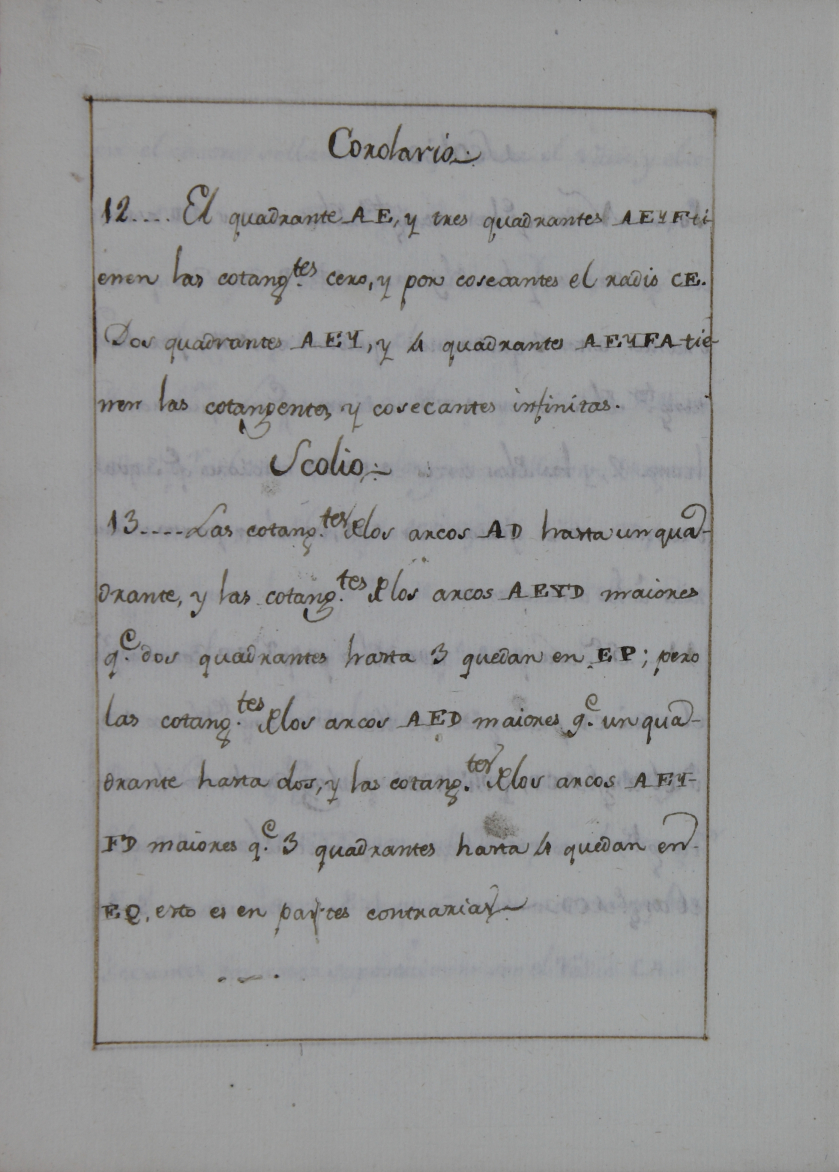 Corolario.
12.... El quadrante AE, y tres quadrantes AEYF ti-
enen las cotang.tes cero, y por cosecantes el radio CE.
Dos quadrantes AEY, y 4 quadrante AEYFA tie-
nen las cotangentes, y cosecantes infinitas.
Scolio.
13.... Las cotang.tes de los arcos AD hasta un qua-
drante, y las cotang.tes de los arcos AEYD maiores
q.e dos quadrantes hasta 3 quedan en EP; pero
las cotang.tes de los arcos AED maiores q.e un qua-
drante hasta dos, y las cotang.tes de los arcos AEY-
FD maiores q.e 3 quadrantes hasta 4 quedan en
EQ, esto es en partes contrarias